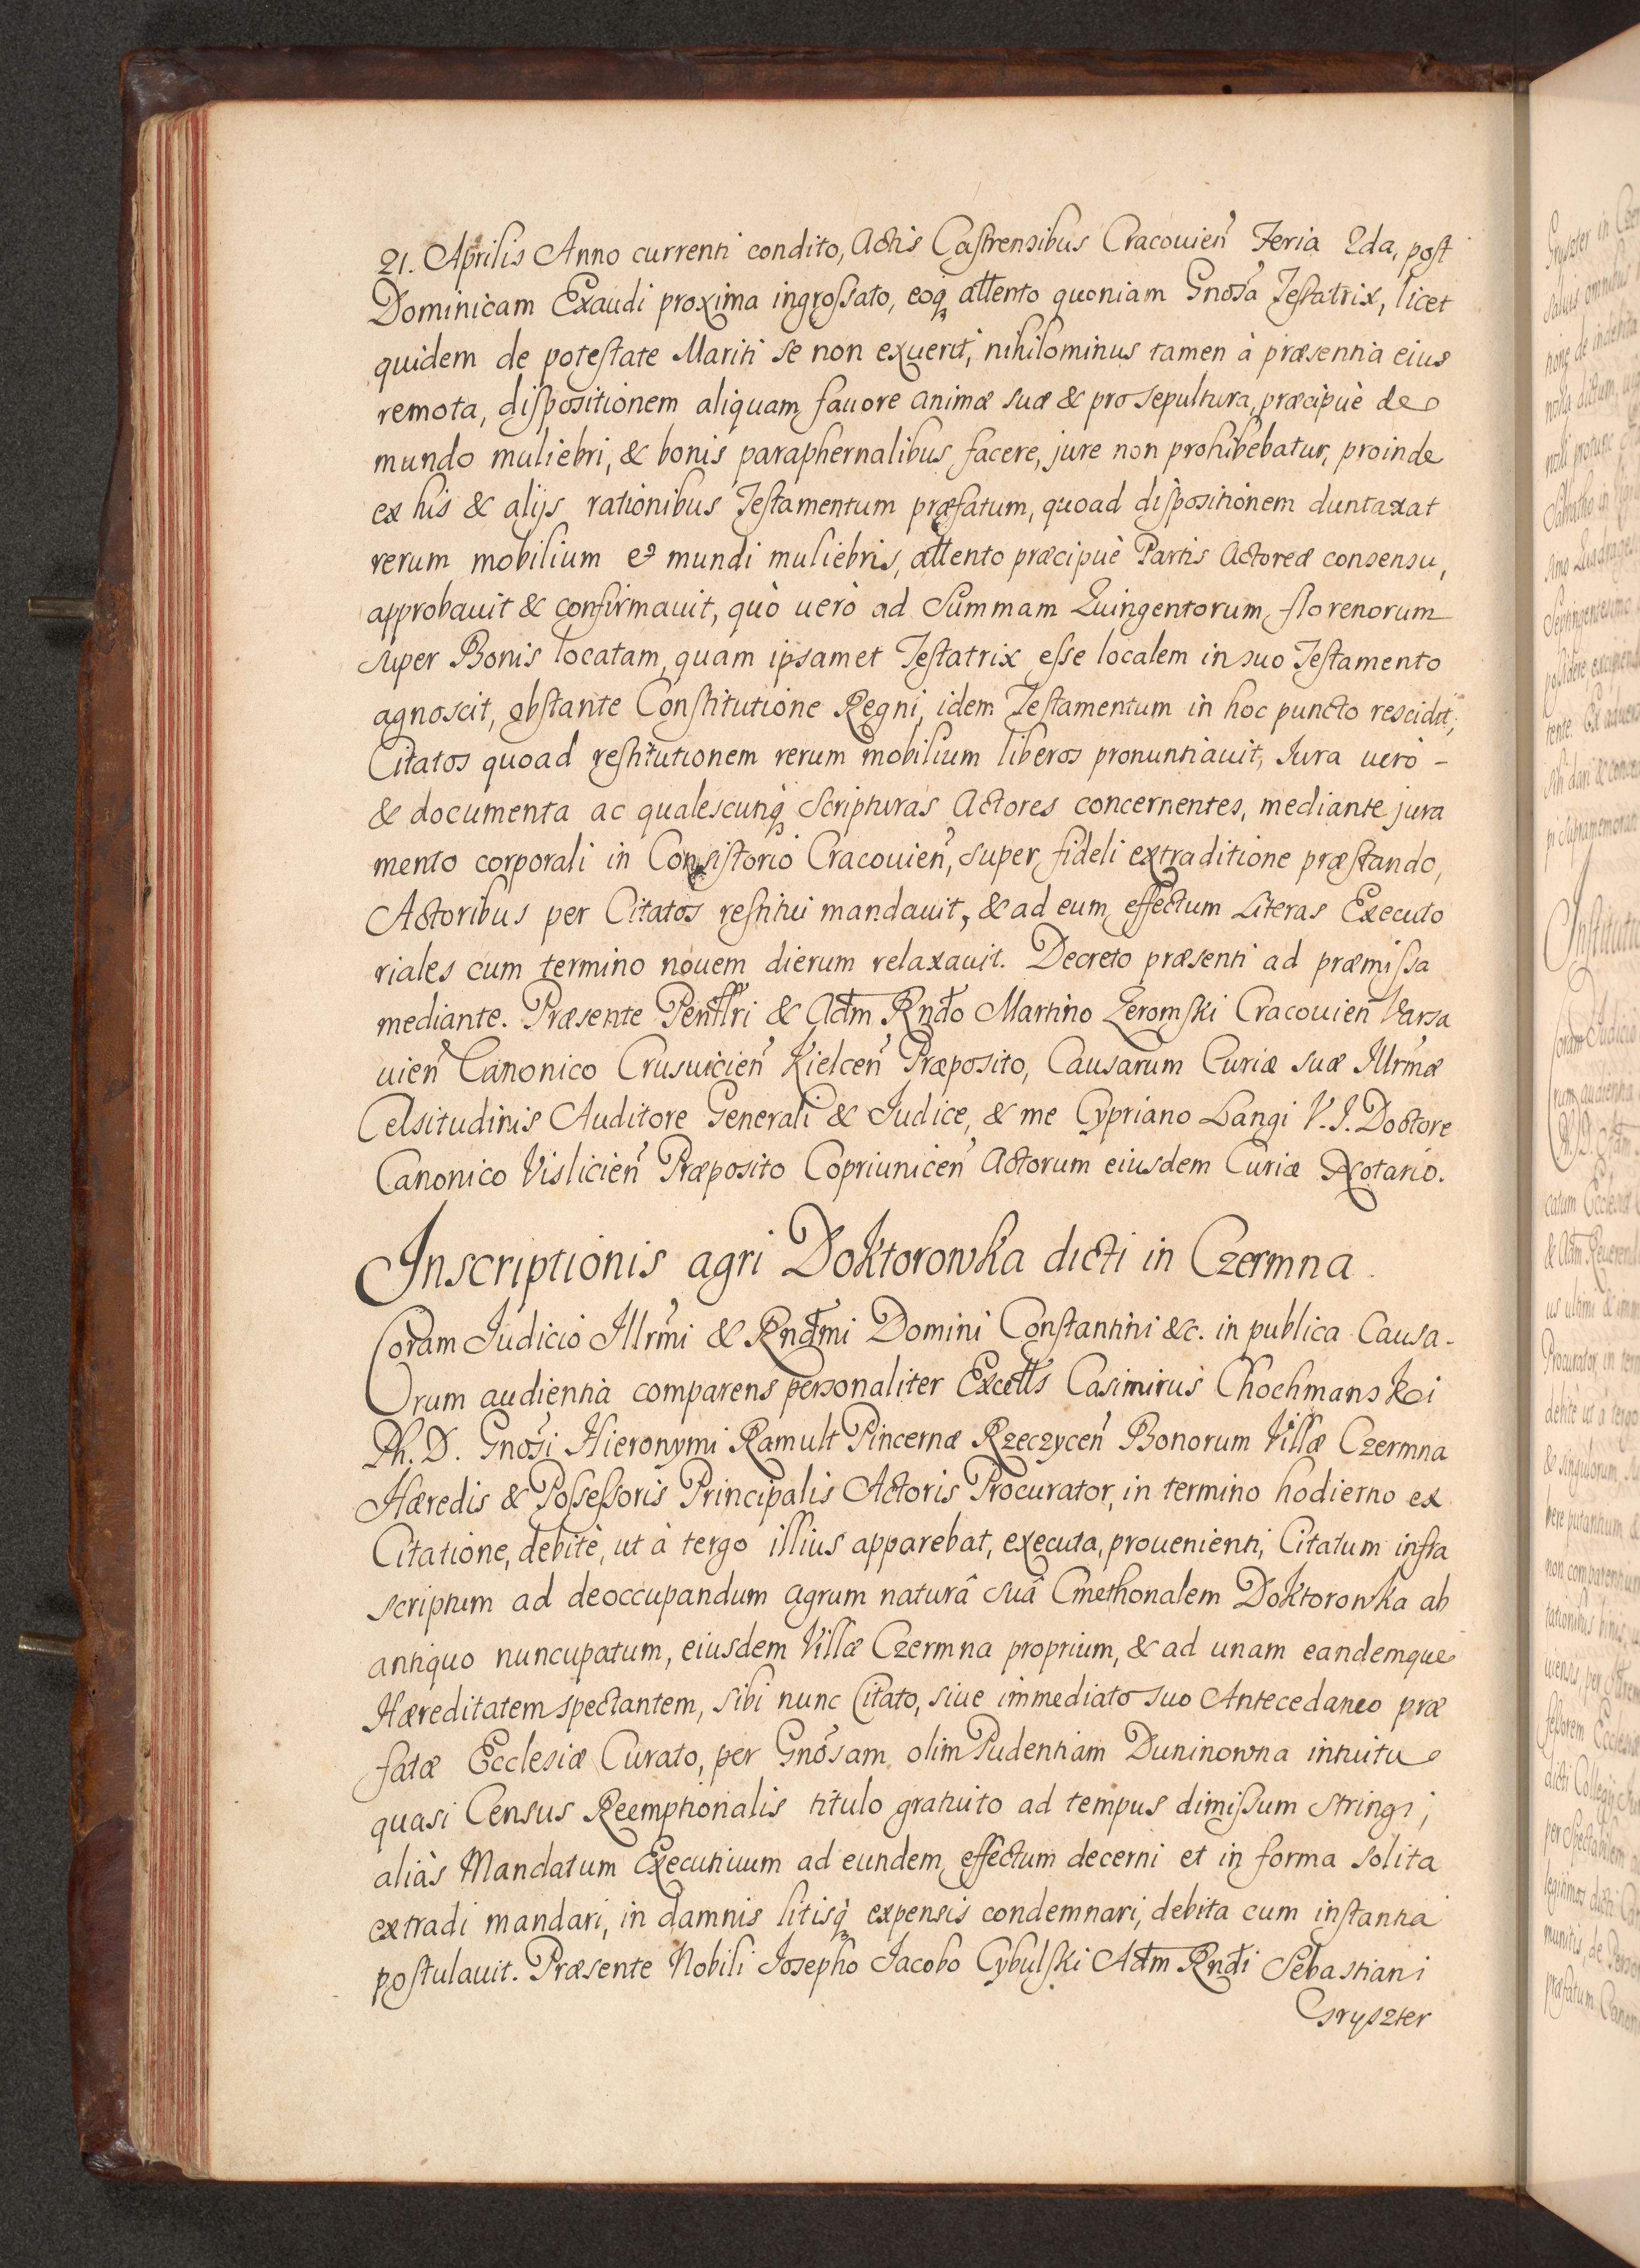 21. Aprilis Anno currenti condito, Actis Castrensibus Cracouien̄ Feria 2da, post
Dominicam Exaudi proxima ingrossato, eoq, attento quoniam Gnosa Testatrix, licet
quidem de potestate Mariti se non exuerit, nihilominus tamen à præsentia eius
remota, dispositionem aliquam fauore animæ suæ & pro sepultura, præcipuè de
mundo muliebri, & bonis paraphernalibus facere, jure non prohibebatur, proinde
ex his & alijs rationibus Testamentum præfatum, quoad dispositionem duntaxat
rerum mobilium et mundi muliebris, attento præcipuè Partis Actoreæ consensu,
approbauit & confirmauit, quò uerò ad Summam Quingentorum florenorum
super Bonis locatam, quam ipsamet Testatrix esse localem in suo Testamento
agnoscit, obstante Constitutione Regni, idem Testamentum in hoc puncto rescidit;
Citatos quoad restitutionem rerum mobilium liberos pronuntiauit, Iura uerò -
& documenta ac qualescunq, Scripturas Actores concernentes, mediante jura
mento corporali in Consistorio Cracouien̄, super fideli extraditione præstando,
Actoribus per Citatos restitui mandauit, & ad eum effectum Literas Executo
riales cum termino nouem dierum relaxauit. Decreto præsenti ad præmissa
mediante. Præsente Penllri & Adm Rndo Martino Zeromski Cracouien̄ Varsa
uien̄ Canonico Crusuicien̄ Kielcen̄ Præposito, Causarum Curiæ suæ Illrmæ
Celsitudinis Auditore Generali & Iudice, & me Cypriano Langi V. I. Doctore
Canonico Vislicien̄ Præposito Copriunicen̄ Actorum eiusdem Curiæ Notario.
Inscriptionis agri Doktorowka dicti in Czermna
Coram Iudicio Illrmi & Rndmi Domini Constantini &c. in publica Causa-
Orum audientia comparens personaliter Excells Casimirus Chochmanski
Ph. D. Gnosi Hieronymi Ramult Pincernæ Rzeczycen̄ Bonorum Villæ Czermna
Hæredis & Possessoris Principalis Actoris Procurator, in termino hodierno ex
Citatione, debitè, ut à tergo illius apparebat, executa, prouenienti, Citatum infra
scriptum ad deoccupandum agrum naturâ suâ Cmethonalem Doktorowka ab
antiquo nuncupatum, eiusdem Villæ Czermna proprium, & ad unam eandemque
Hæreditatem spectantem, sibi nunc Citato, siue immediato suo Antecedaneo præ
fatæ Ecclesiæ Curato, per Gnosam olim Pudentiam Duninowna intuitu
quasi Census Reemptionalis titulo gratuito ad tempus dimissum stringi;
aliàs Mandatum Executiuum ad eundem effectum decerni et in forma solita
extradi mandari, in damnis litisq, expensis condemnari, debita cum instantia
postulauit. Præsente Nobili Iosepho Iacobo Cybulski Adm Rndi Sebastiani
Gryszter